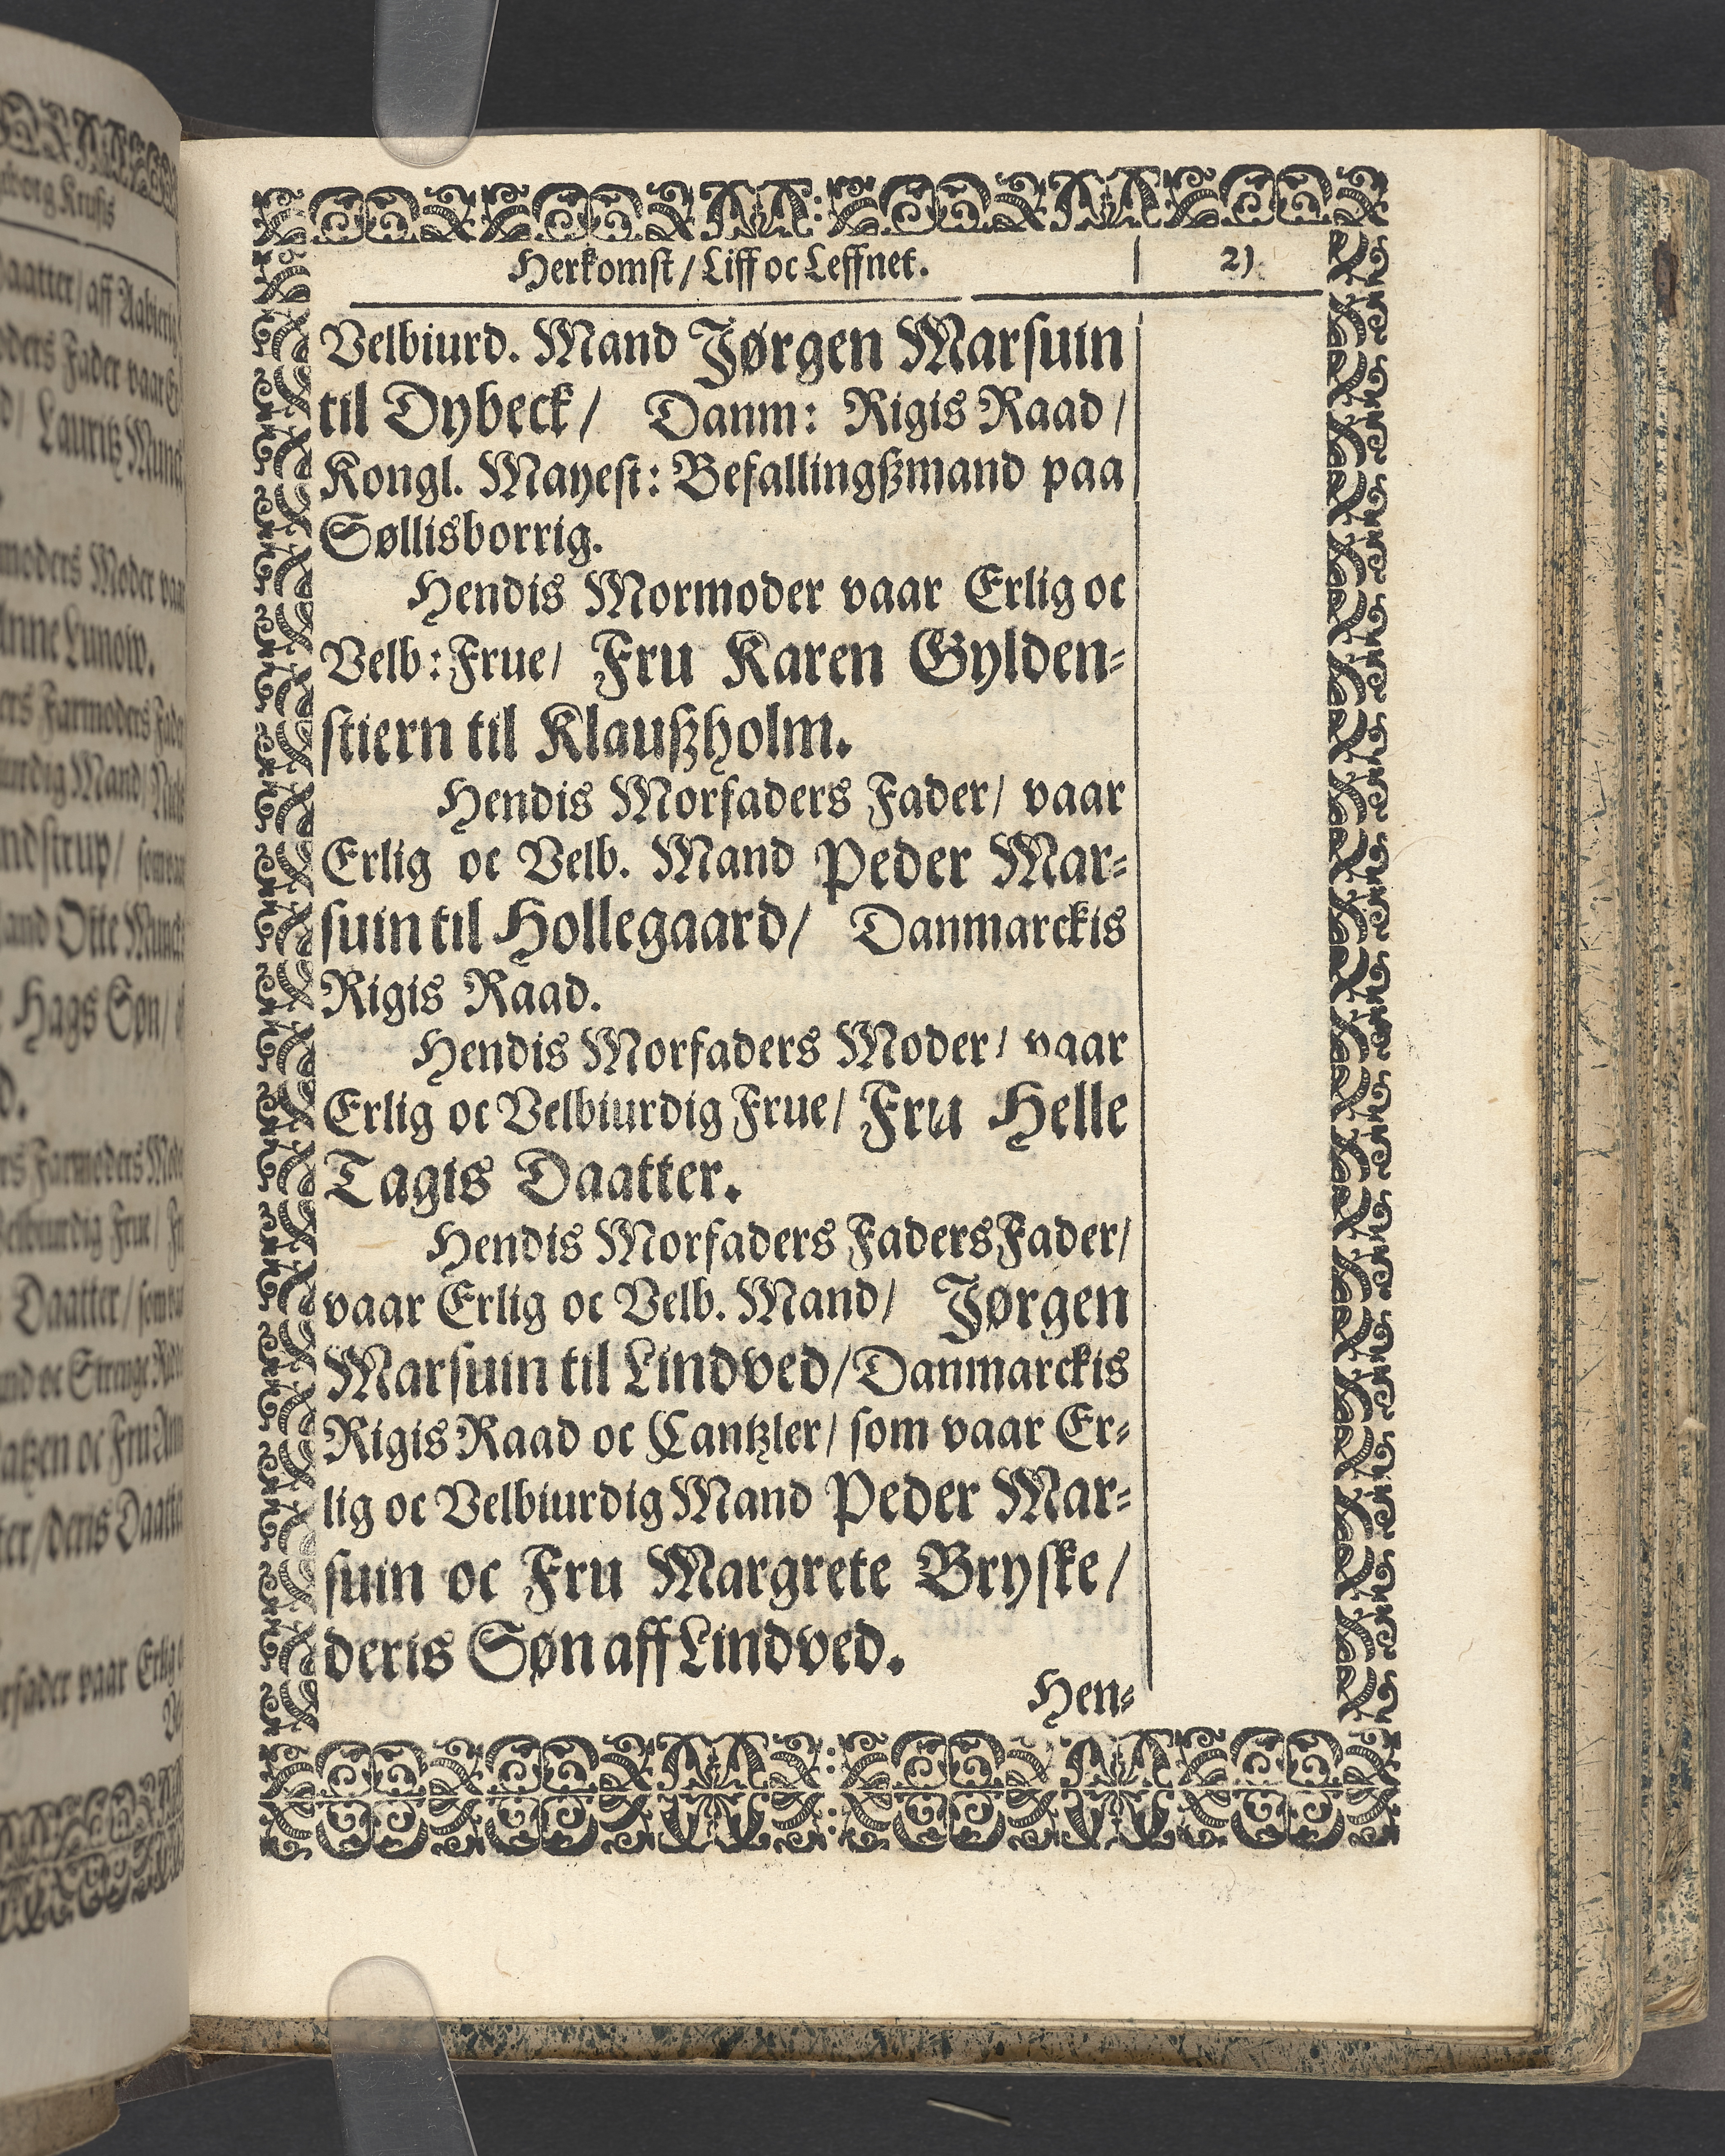 Herkomst / Liff oc Leffnet.
2)
Velbiurd. Mand Jørgen Marsuin
til Dybeck / Danm: Rigis Raad /
Kongl. Mayest: Befallingßmand paa
Søllisborrig.
Hendis Mormoder vaar Erlig oc
Velb: Frue / Fru Karen Gylden-
stiern til Klaußholm.
Hendis Morfaders Fader / vaar
Erlig oc Velb. Mand Peder Mar-
suin til Hollegaard / Danmarckis
Rigis Raad.
Hendis Morfaders Moder / vaar
Erlig oc Velbiurdig Frue / Fru Helle
Tagis Daatter.
Hendis Morfaders Faders Fader /
vaar Erlig oc Velb. Mand / Jørgen
Marsuin til Lindved / Danmarckis
Rigis Raad oc Cantzler / som vaar Er-
lig oc Velbiurdig Mand Peder Mar-
suin oc Fru Margrete Bryske /
deris Søn aff Lindved.
Hen-